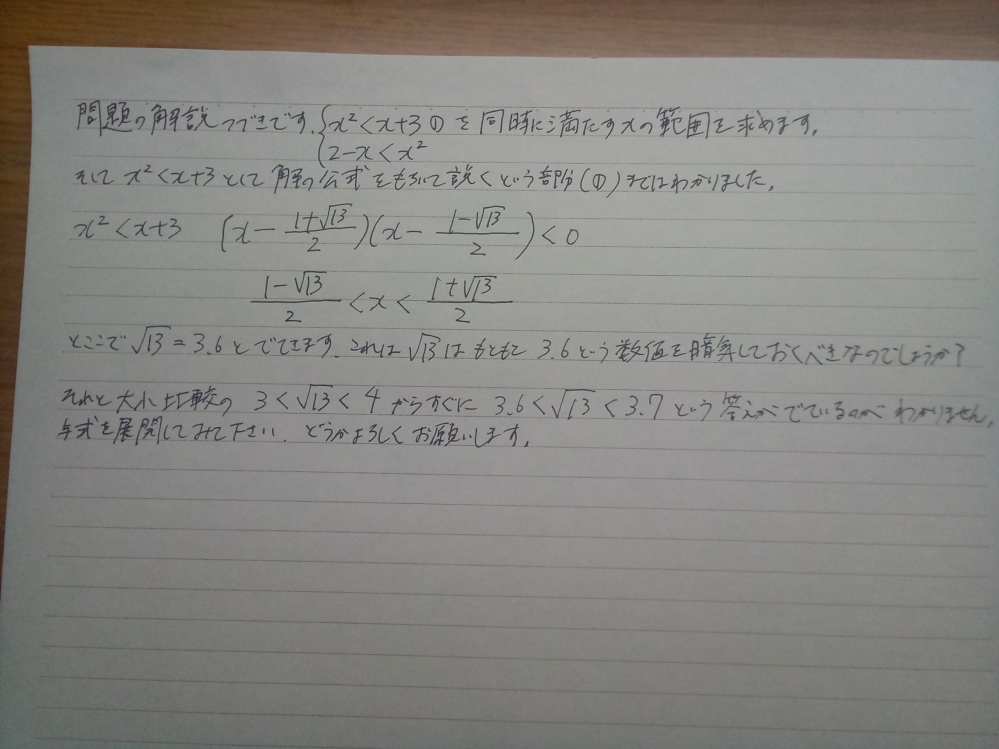 問題の解説つづきです。{x²<x+3 ① を同時に満たすxの範囲を求めます。
2-x<x²
そして x²<x+3 として 解の公式をもちいて説くという部分(①)まではわかりました。
x²<x+3 (x - 1+√13/2)(x - 1-√13/2)<0
1-√13/2 < x < 1+√13/2
ところで √13=3.6 とでてきます。これは √13 はもともと 3.6 という数値を暗算しておくべきなのでしょうか?
それと 大小比較の 3<√13<4 からすぐに 3.6<√13<3.7 という 答えがでているのがわかりません。
与式を展開してみて下さい。どうかよろしくお願いします。